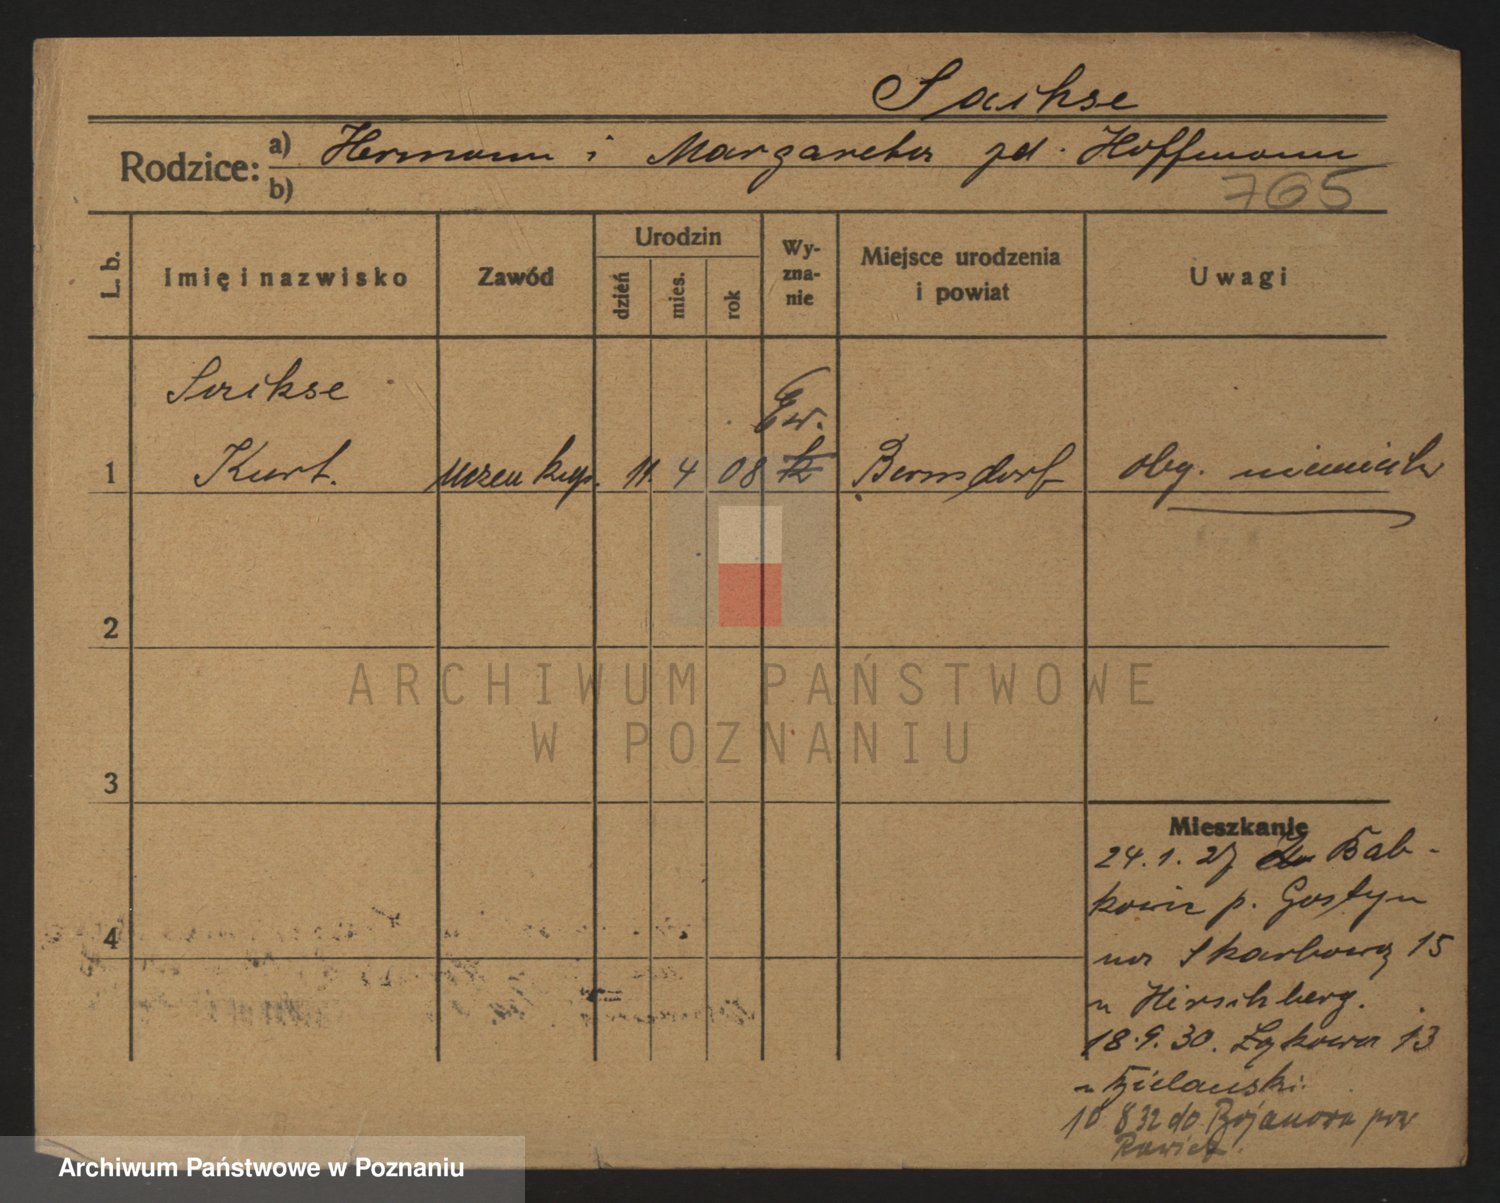 Saikse
Rodzice: a) Hermann i Margaretha pd. Hoffmann
b)
765
L. b.
Imię i nazwisko
Zawód
Urodzin
dzień
mies.
rok
Wy-
zna-
nie
Miejsce urodzenia
i powiat
Uwagi
Saikse
Ew.
1 Kurt. uczeń kup. 11. 4 08 k Bernsdorf oby. niemiecka
2
3
4
ARCHIWUM PAŃSTWOWE
W POZNANIU
Mieszkanie
24.1.27 Bab-
kowic p. Gostyn
na Skarbowa 15
u Hirschberg.
18.9.30. Łąkowa 13
u Bielawski.
10 8 32 do Bojanowa pow
Rawicz.
Archiwum Państwowe w Poznaniu